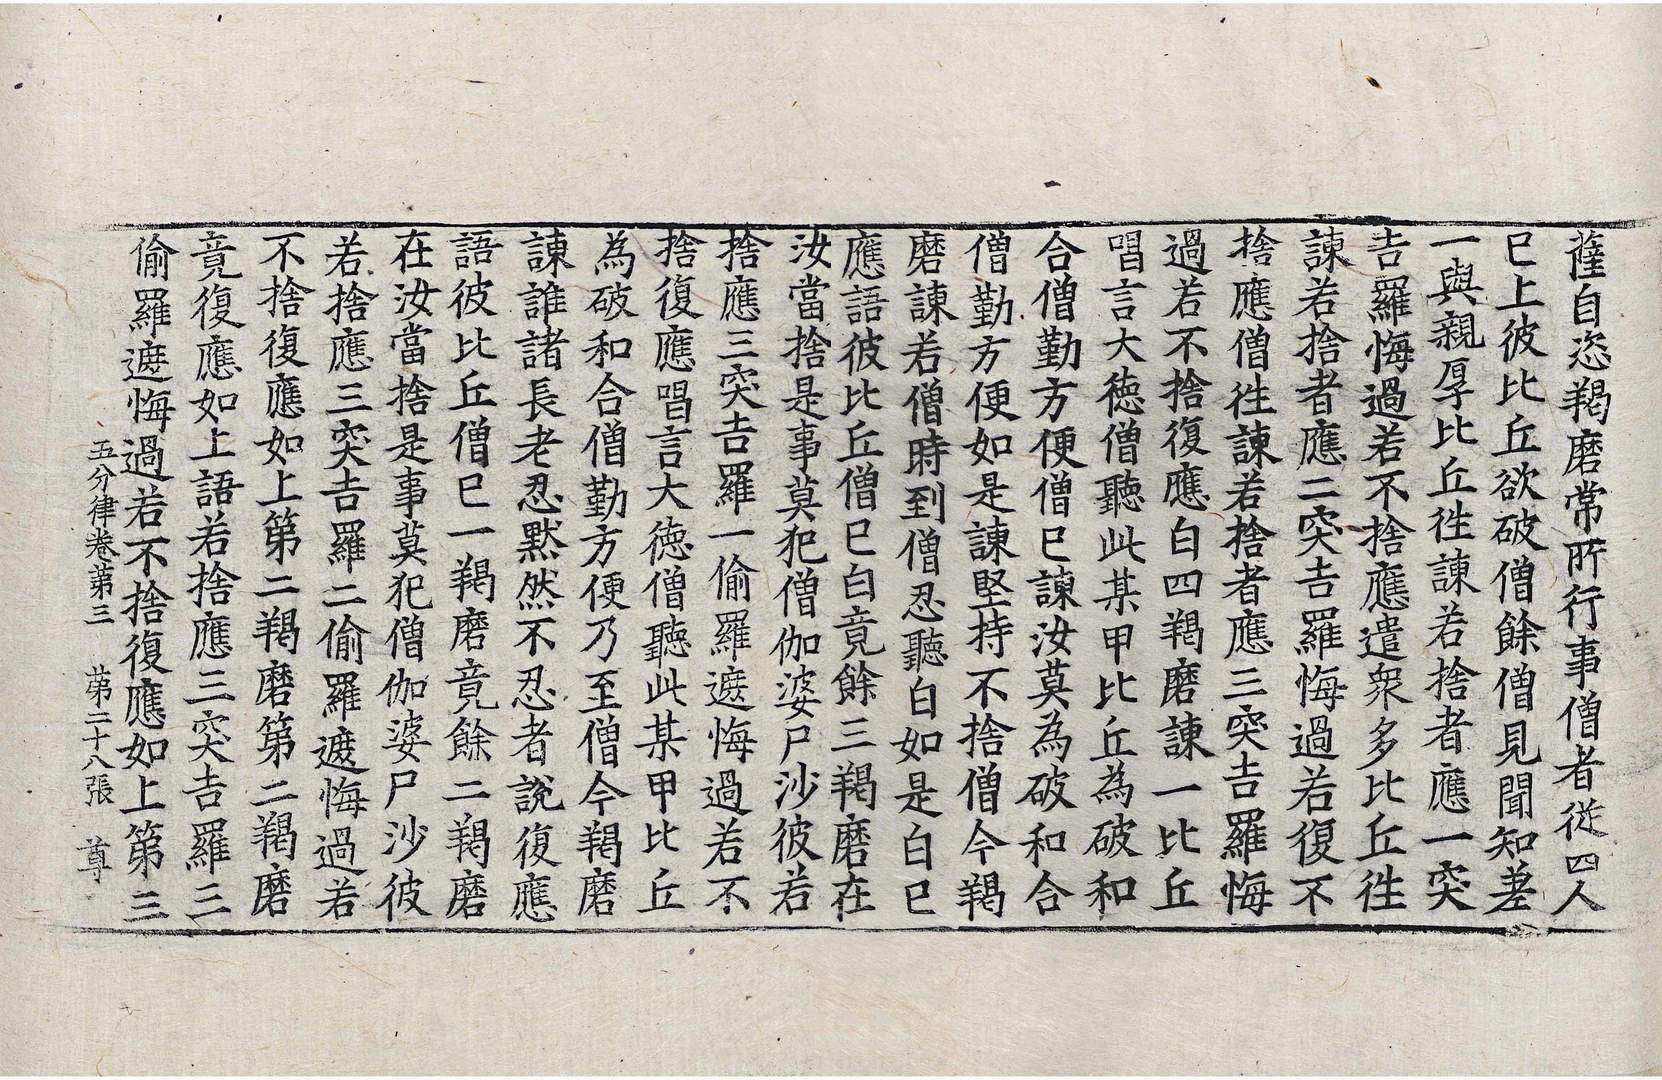 薩自恣羯磨常所行事僧者從四人
已上彼比丘欲破僧餘僧見聞知差
一與親厚比丘徃諫若捨者應一突
吉羅悔過若不捨應遣衆多比丘徃
諫若捨者應二突吉羅悔過若復不
捨應僧徃諫若捨者應三突吉羅悔
過若不捨復應白四羯磨諫一比丘
唱言大徳僧聽此某甲比丘為破和
合僧勤方便僧已諫汝莫為破和合
僧勤方便如是諫堅持不捨僧今羯
磨諫若僧時到僧忍聽白如是白已
應語彼比丘僧已白竟餘三羯磨在
汝當捨是事莫犯僧伽婆尸沙彼若
捨應三突吉羅一偷羅遮悔過若不
捨復應唱言大徳僧聽此某甲比丘
為破和合僧勤方便乃至僧今羯磨
諫誰諸長老忍默然不忍者說復應
語彼比丘僧已一羯磨竟餘二羯磨
在汝當捨是事莫犯僧伽婆尸沙彼
若捨應三突吉羅二偷羅遮悔過若
不捨復應如上第二羯磨第二羯磨
竟復應如上語若捨應三突吉羅三
偷羅遮悔過若不捨復應如上第三
五分律卷第三 第二十八張 尊